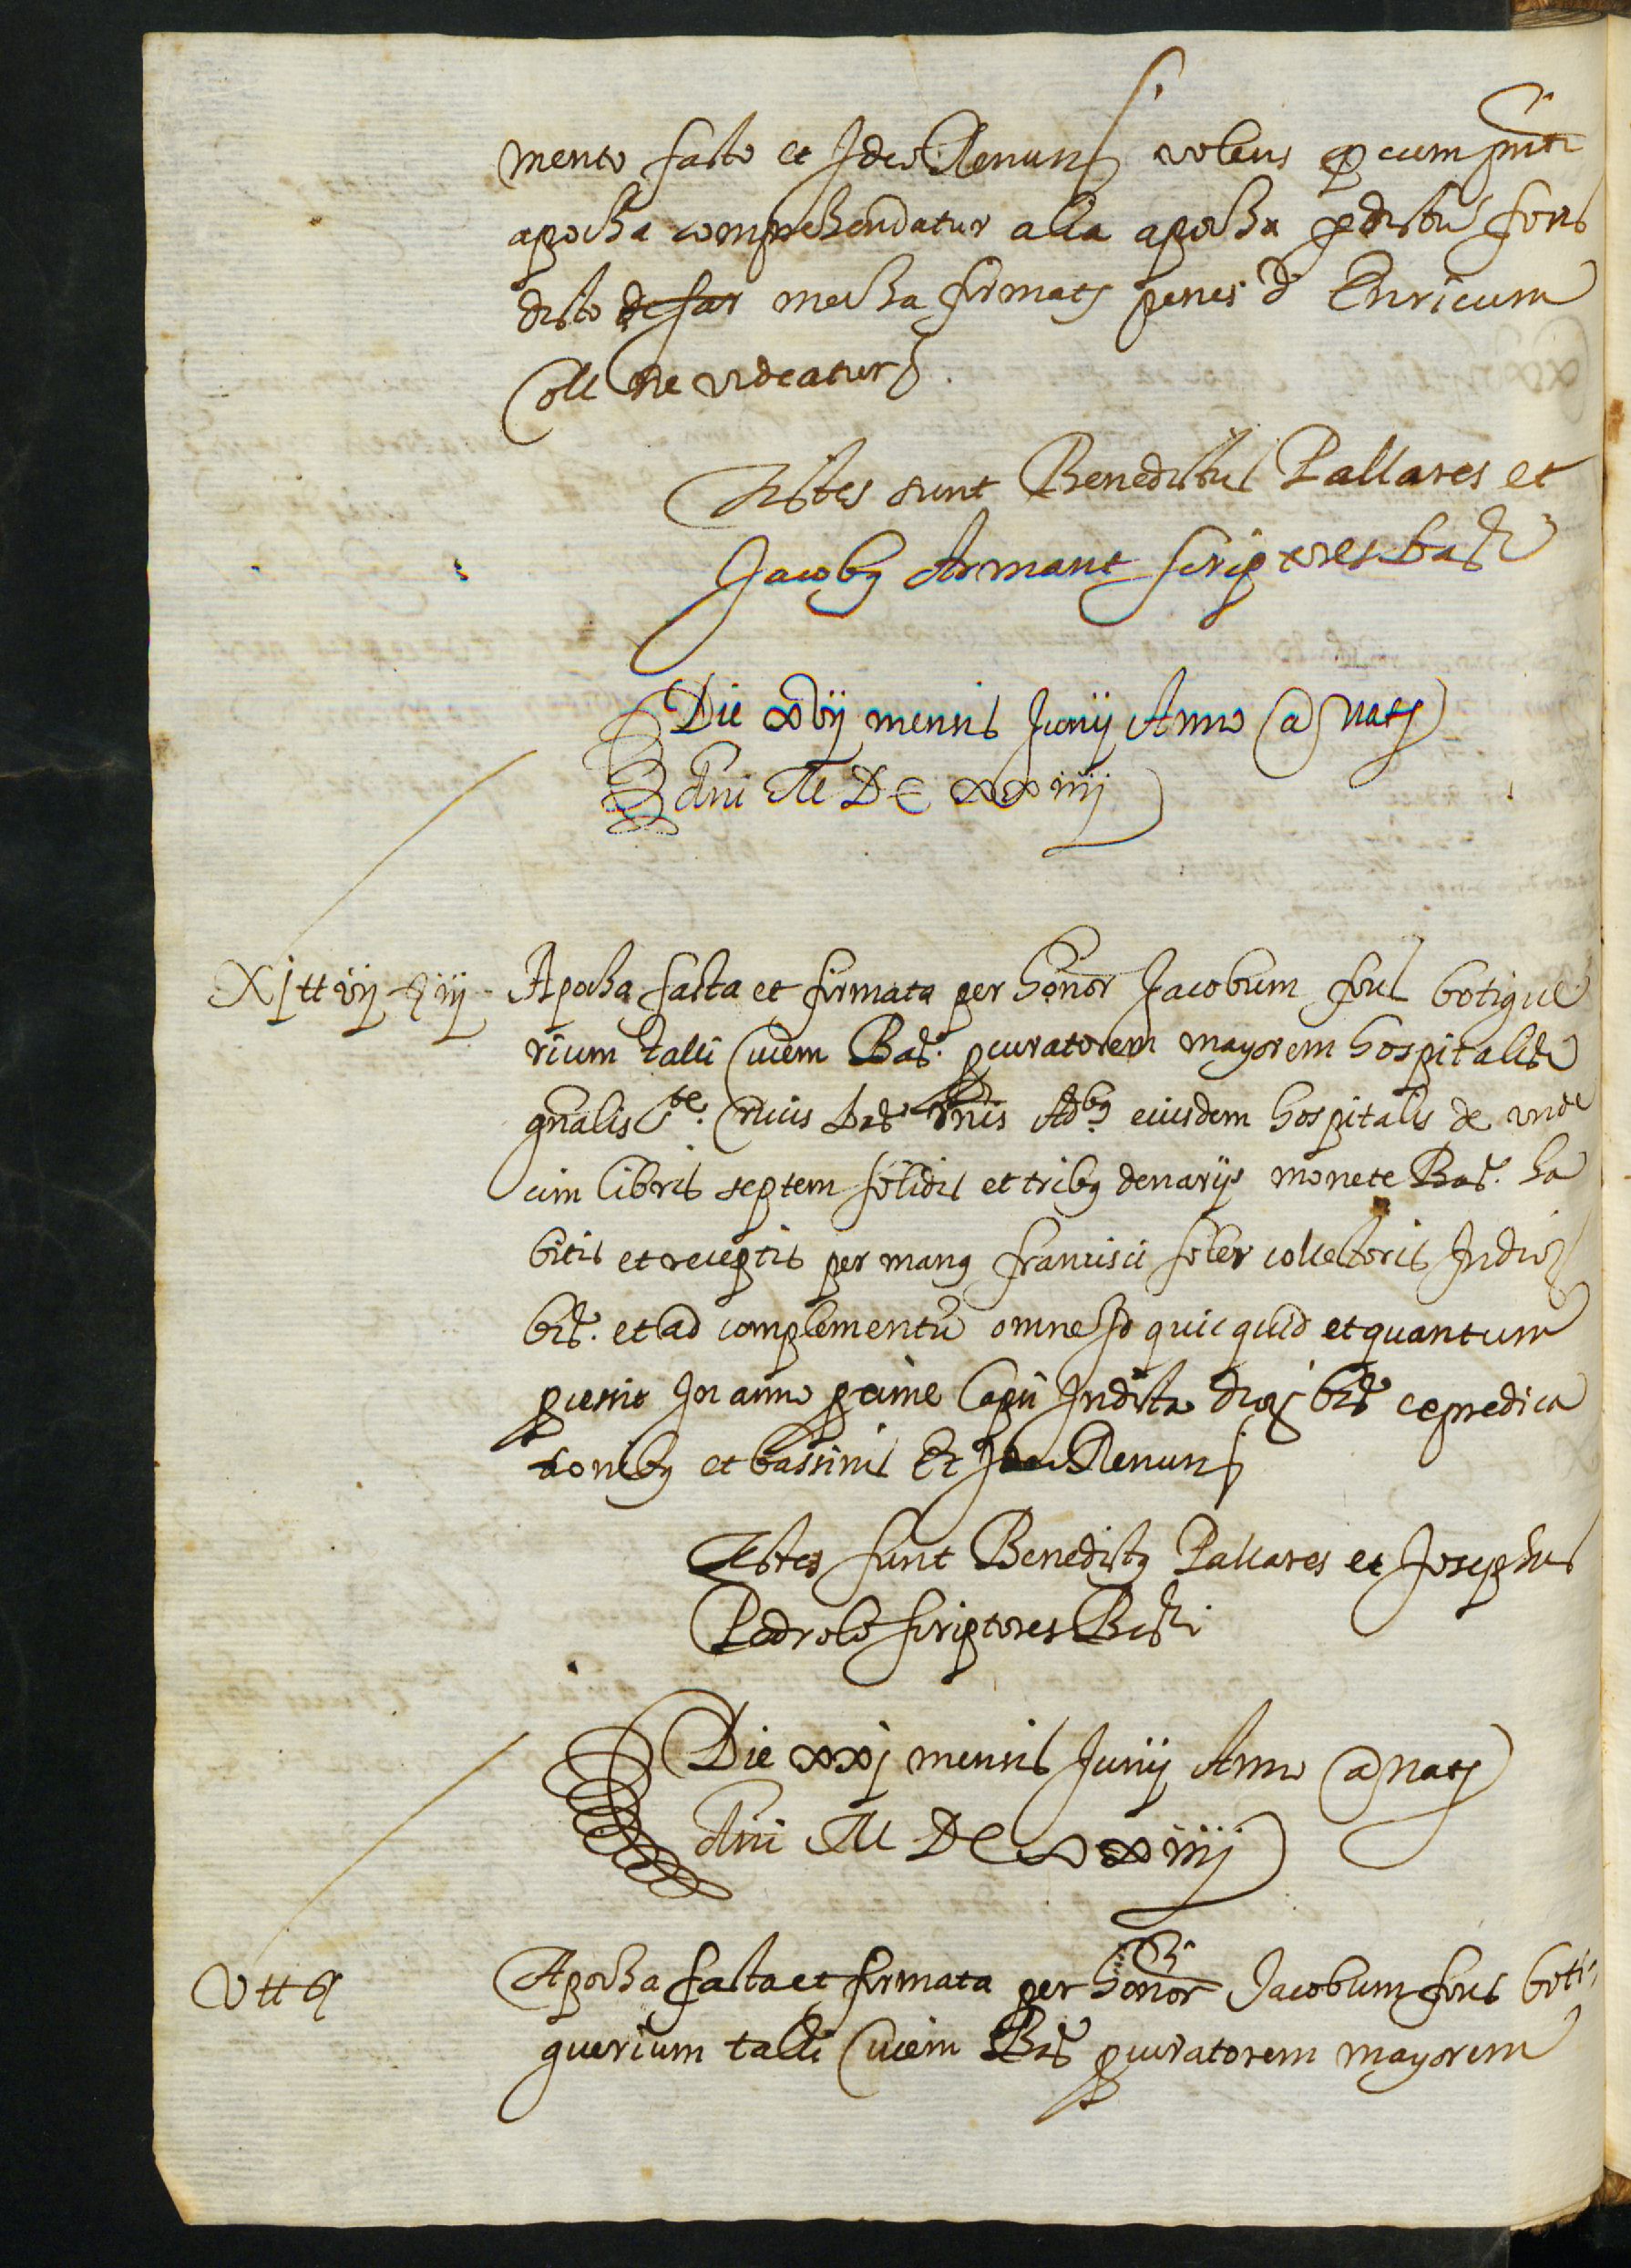 mento facto et Ideo Renun volens q cum pnti
apocha comprehendatur alia apocha pdictu fons
dicto de far mecha firmata penes d Enricum
Coll ne videatur
Testes sunt Benedictus Pallares et
Jacobus Armant scriptores Bar
Die xvij mensis Junij Anno a Nat
Dni M DC xxiiij
Xj tt vij s iij Apocha facta et firmata per honor Jacobum fons botigue
rium talli Civem Bar. procuratorem mayorem hospitalis
gnalis Ste. Crucis Bar omnis Adbus eiusdem hospitalis de unde
cim libris septem solidis et tribus denarijs monete Bar. ha
bitis et receptis per manus francisci soler collectoris Indio
bis. et ad complementu omne Id quicquid et quantum
processit In anno proxime Capii Indicta bis e predica
tionibus et bassinis Et Ideo Renun
Testes sunt Benedictus Pallares et Josephus
Pedrolo scriptores Bar
Die xxj mensis Junij Anno a Nat
Dni M DC xxiiij
V tt s Apocha facta et firmata per honor Jacobum fons boti
guerium talli Civem Bar procuratorem mayorem